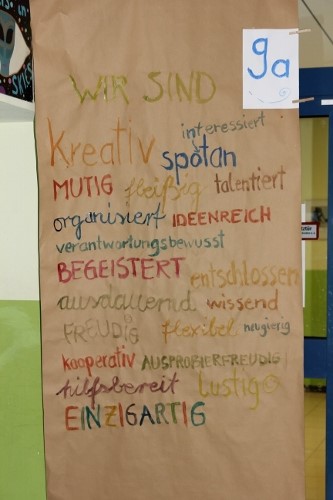 9a
WIR SIND
interessiert
kreativ
spotan
MUTIG fleißig talentiert
organisiert IDEENREICH
verantwortungsbewusst
BEGEISTERT
entschlossen
ausdauernd wissend
FREUDIG flexibel neugierig
kooperativ AUSPROBIERFREUDIG
hilfsbereit lustig
EINZIGARTIG